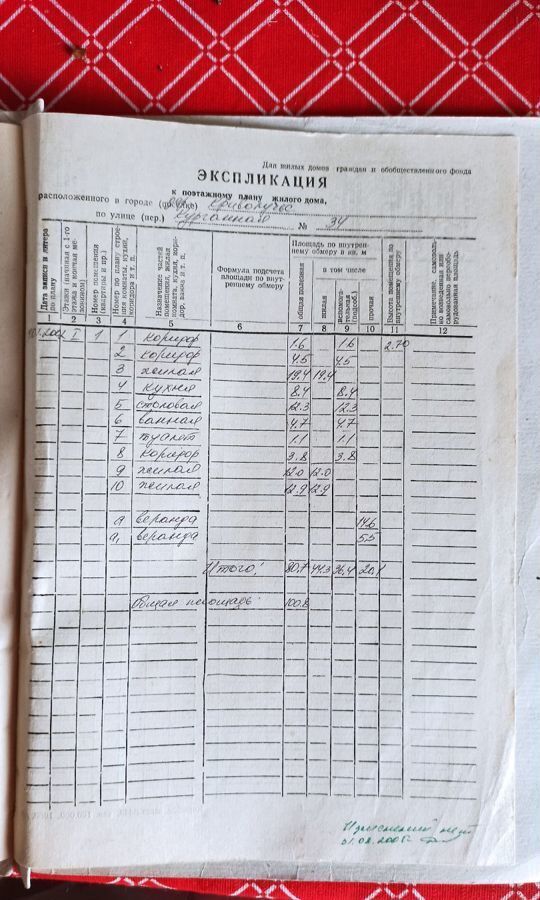 Для жилых домов граждан и обобществленного фонда
ЭКСПЛИКАЦИЯ
к поэтажному плану жилого дома,
расположенного в городе (поселке)
по улице (пер.) Курганная № 34
Дата записи и литера по плану
Этажи (начиная с 1-го этажа и кончая мезонином)
Номер помещения (квартиры и пр.)
Номер по плану строения комнаты, кухни, коридора и т. п.
Назначение частей помещения, жилая комната, кухня, коридор, ванна и т. п.
Формула подсчета площади по внутреннему обмеру
Площадь по внутреннему обмеру в кв. м
общая полезная
в том числе
жилая
вспомогательная (подсоб.)
прочая
Высота помещения по внутреннему обмеру
Примечание, самовольно возведенная или самовольно переоборудованная площадь
1 2 3 4 5 6 7 8 9 10 11 12
I 1 1 коридор 1.6 1.6 2.70
2 коридор 4.5 4.5
3 жилая 19.4 19.4
4 кухня 8.4 8.4
5 столовая 12.3 12.3
6 ванная 4.7 4.7
7 туалет 1.1 1.1
8 коридор 3.8 3.8
9 жилая 12.0 12.0
10 жилая 12.9 12.9
а веранда 14.6
а₁ веранда 5.5
Итого: 80.7 44.3 36.4 20.1
Общая площадь: 100.8
Изменений нет